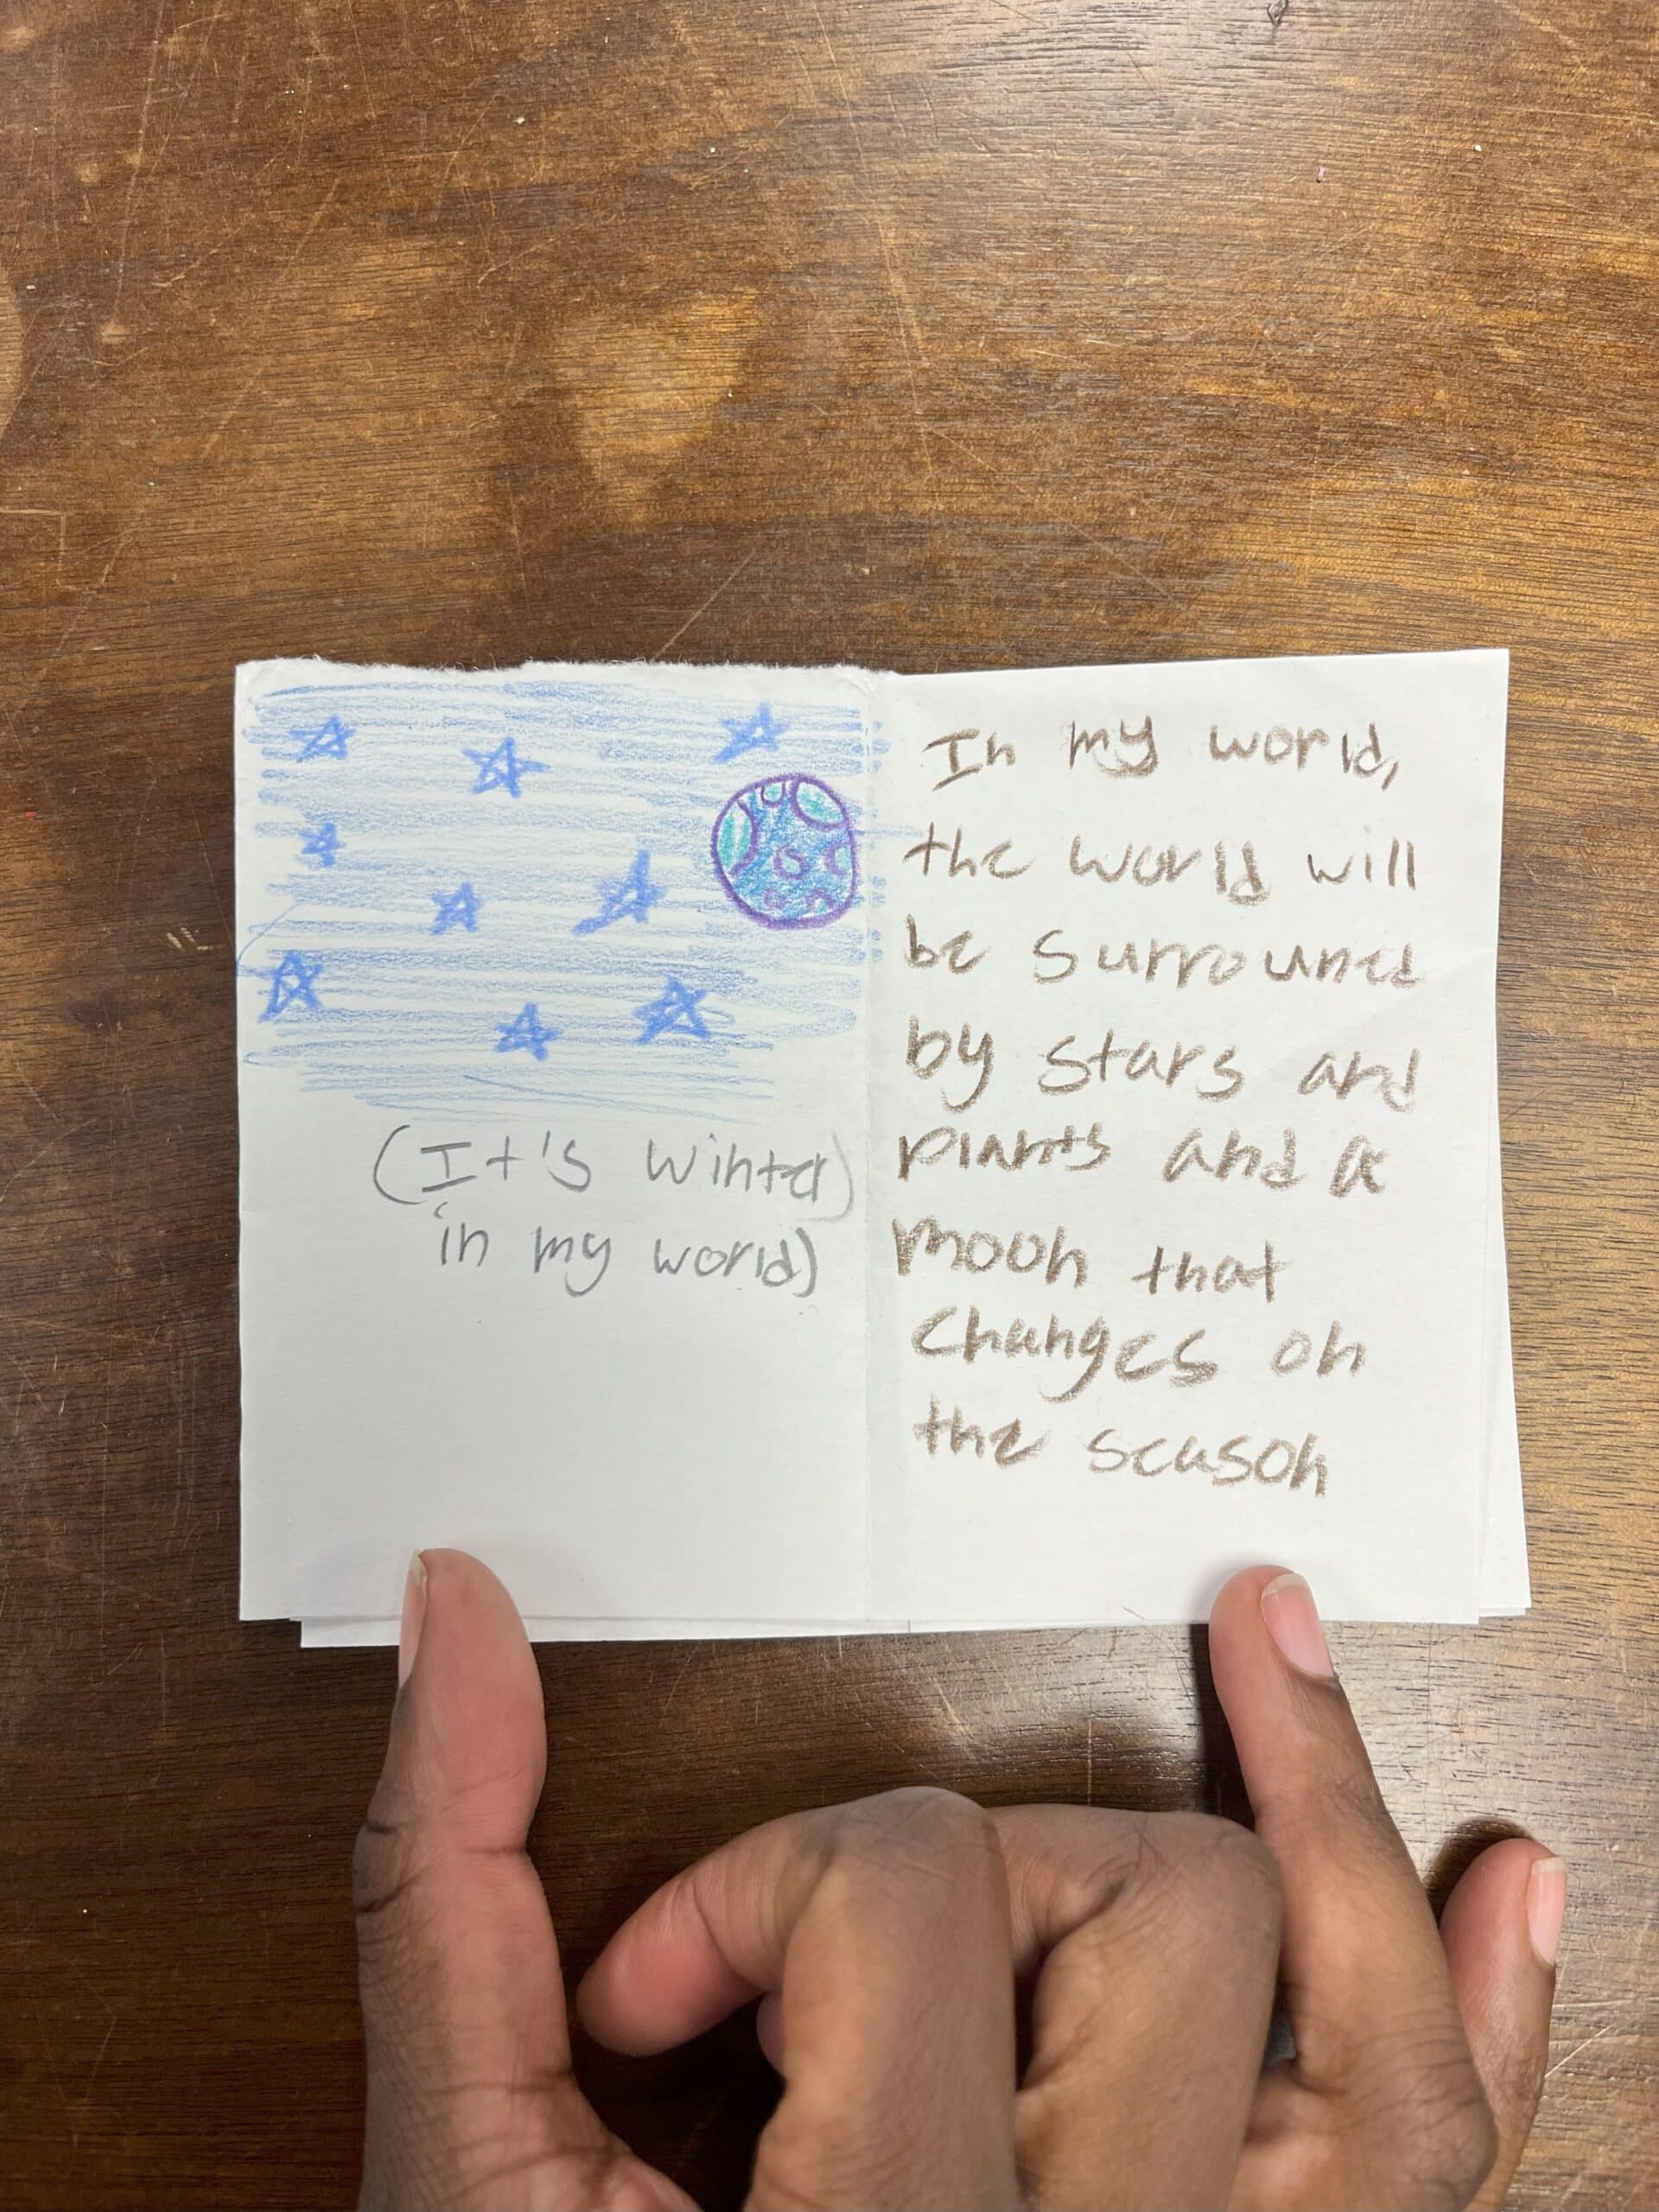 (It's winter)
in my world)
In my world,
the world will
be surrouned
by stars and
plants and a
moon that
changes on
the season